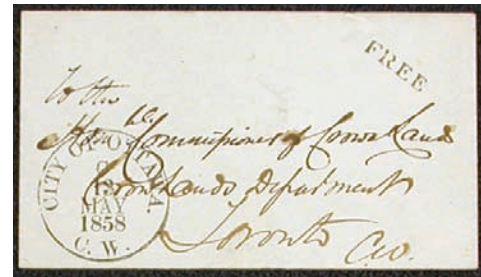 FREE
To the
Hon ble Commissioner of Crown Lands
Crown Lands Department
Toronto C.W.
CITY OF OTTAWA.
MAY
1858
C. W.